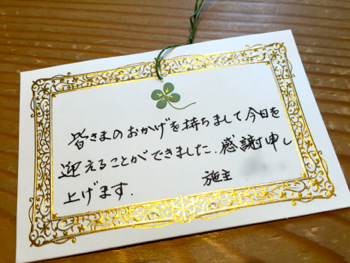 皆さまのおかげを持ちまして今日を
迎えることができました. 感謝申し
上げます.
施主